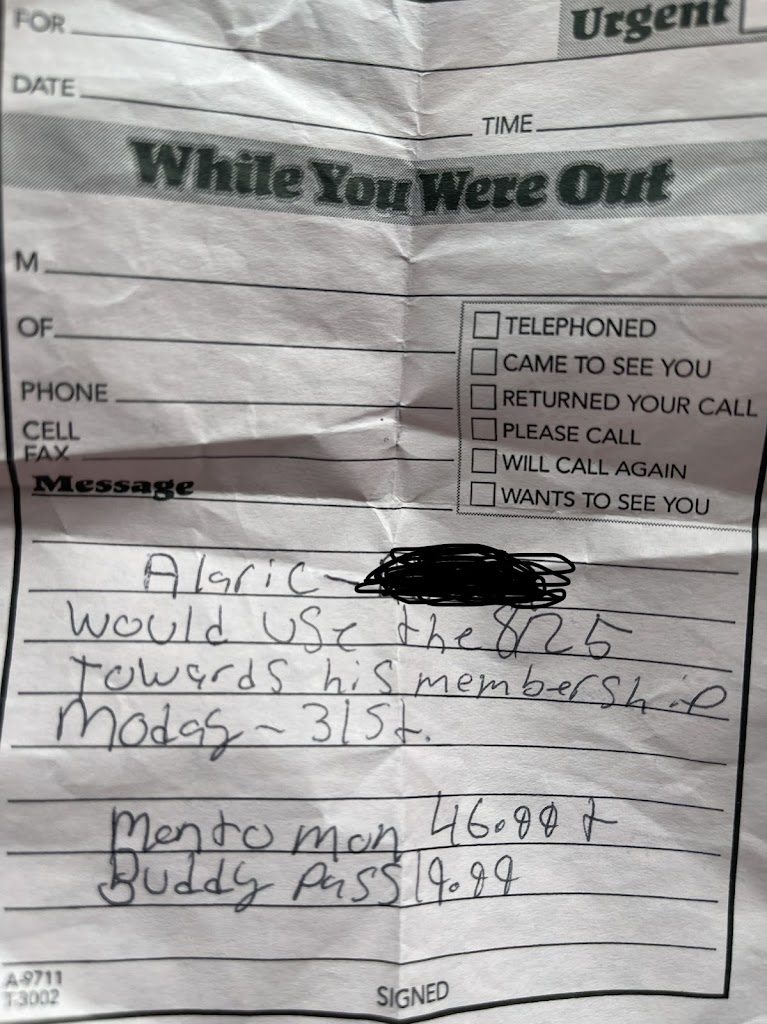 FOR
Urgent
DATE
TIME
While You Were Out
M
OF
TELEPHONED
CAME TO SEE YOU
PHONE
RETURNED YOUR CALL
CELL
PLEASE CALL
FAX
WILL CALL AGAIN
Message
WANTS TO SEE YOU
Alaric -
would use the $25
towards his membership
Moday - 31st.
Mento mon 46.99 +
Buddy pass 19.99
A-9711
T-3002
SIGNED